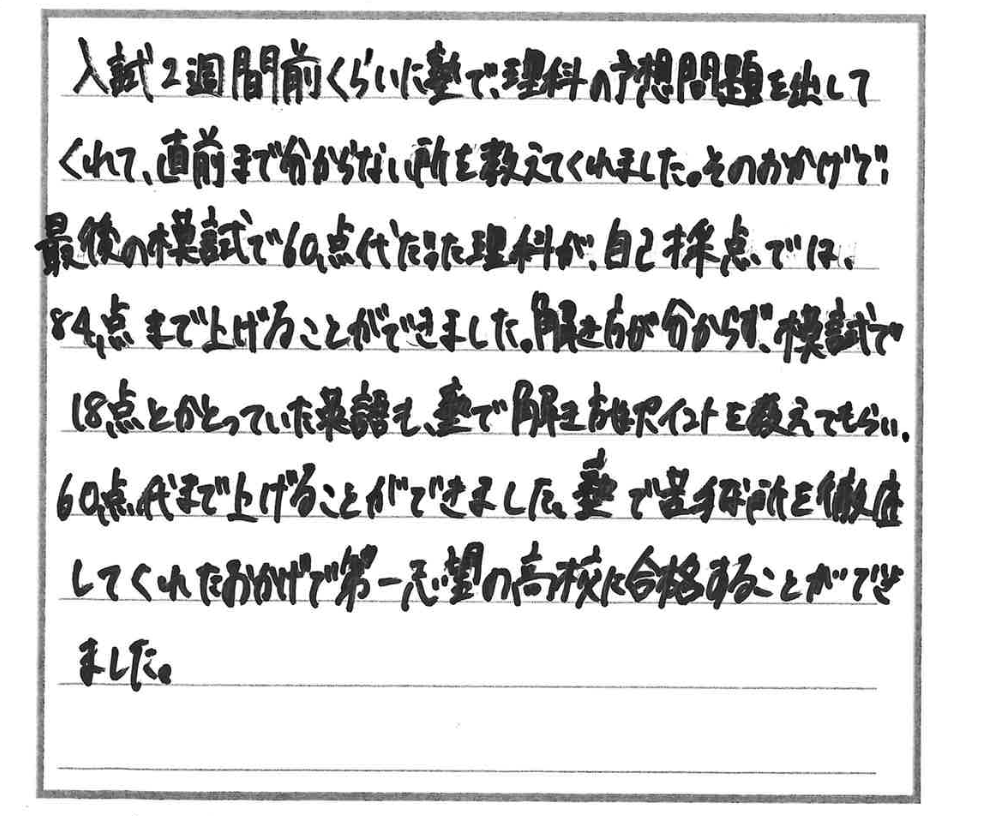 入試2週間前くらいに塾で、理科の予想問題を出して
くれて、直前まで分からない所を教えてくれました。そのおかげで、
最後の模試で60点代だった理科が、自己採点では、
84点まで上げることができました。解き方が分からず、模試で
18点とかとっていた英語も、塾で解き方やポイントを教えてもらい、
60点代まで上げることができました。塾で苦手な所を徹底
してくれたおかげで第一志望の高校に合格することができ
ました。